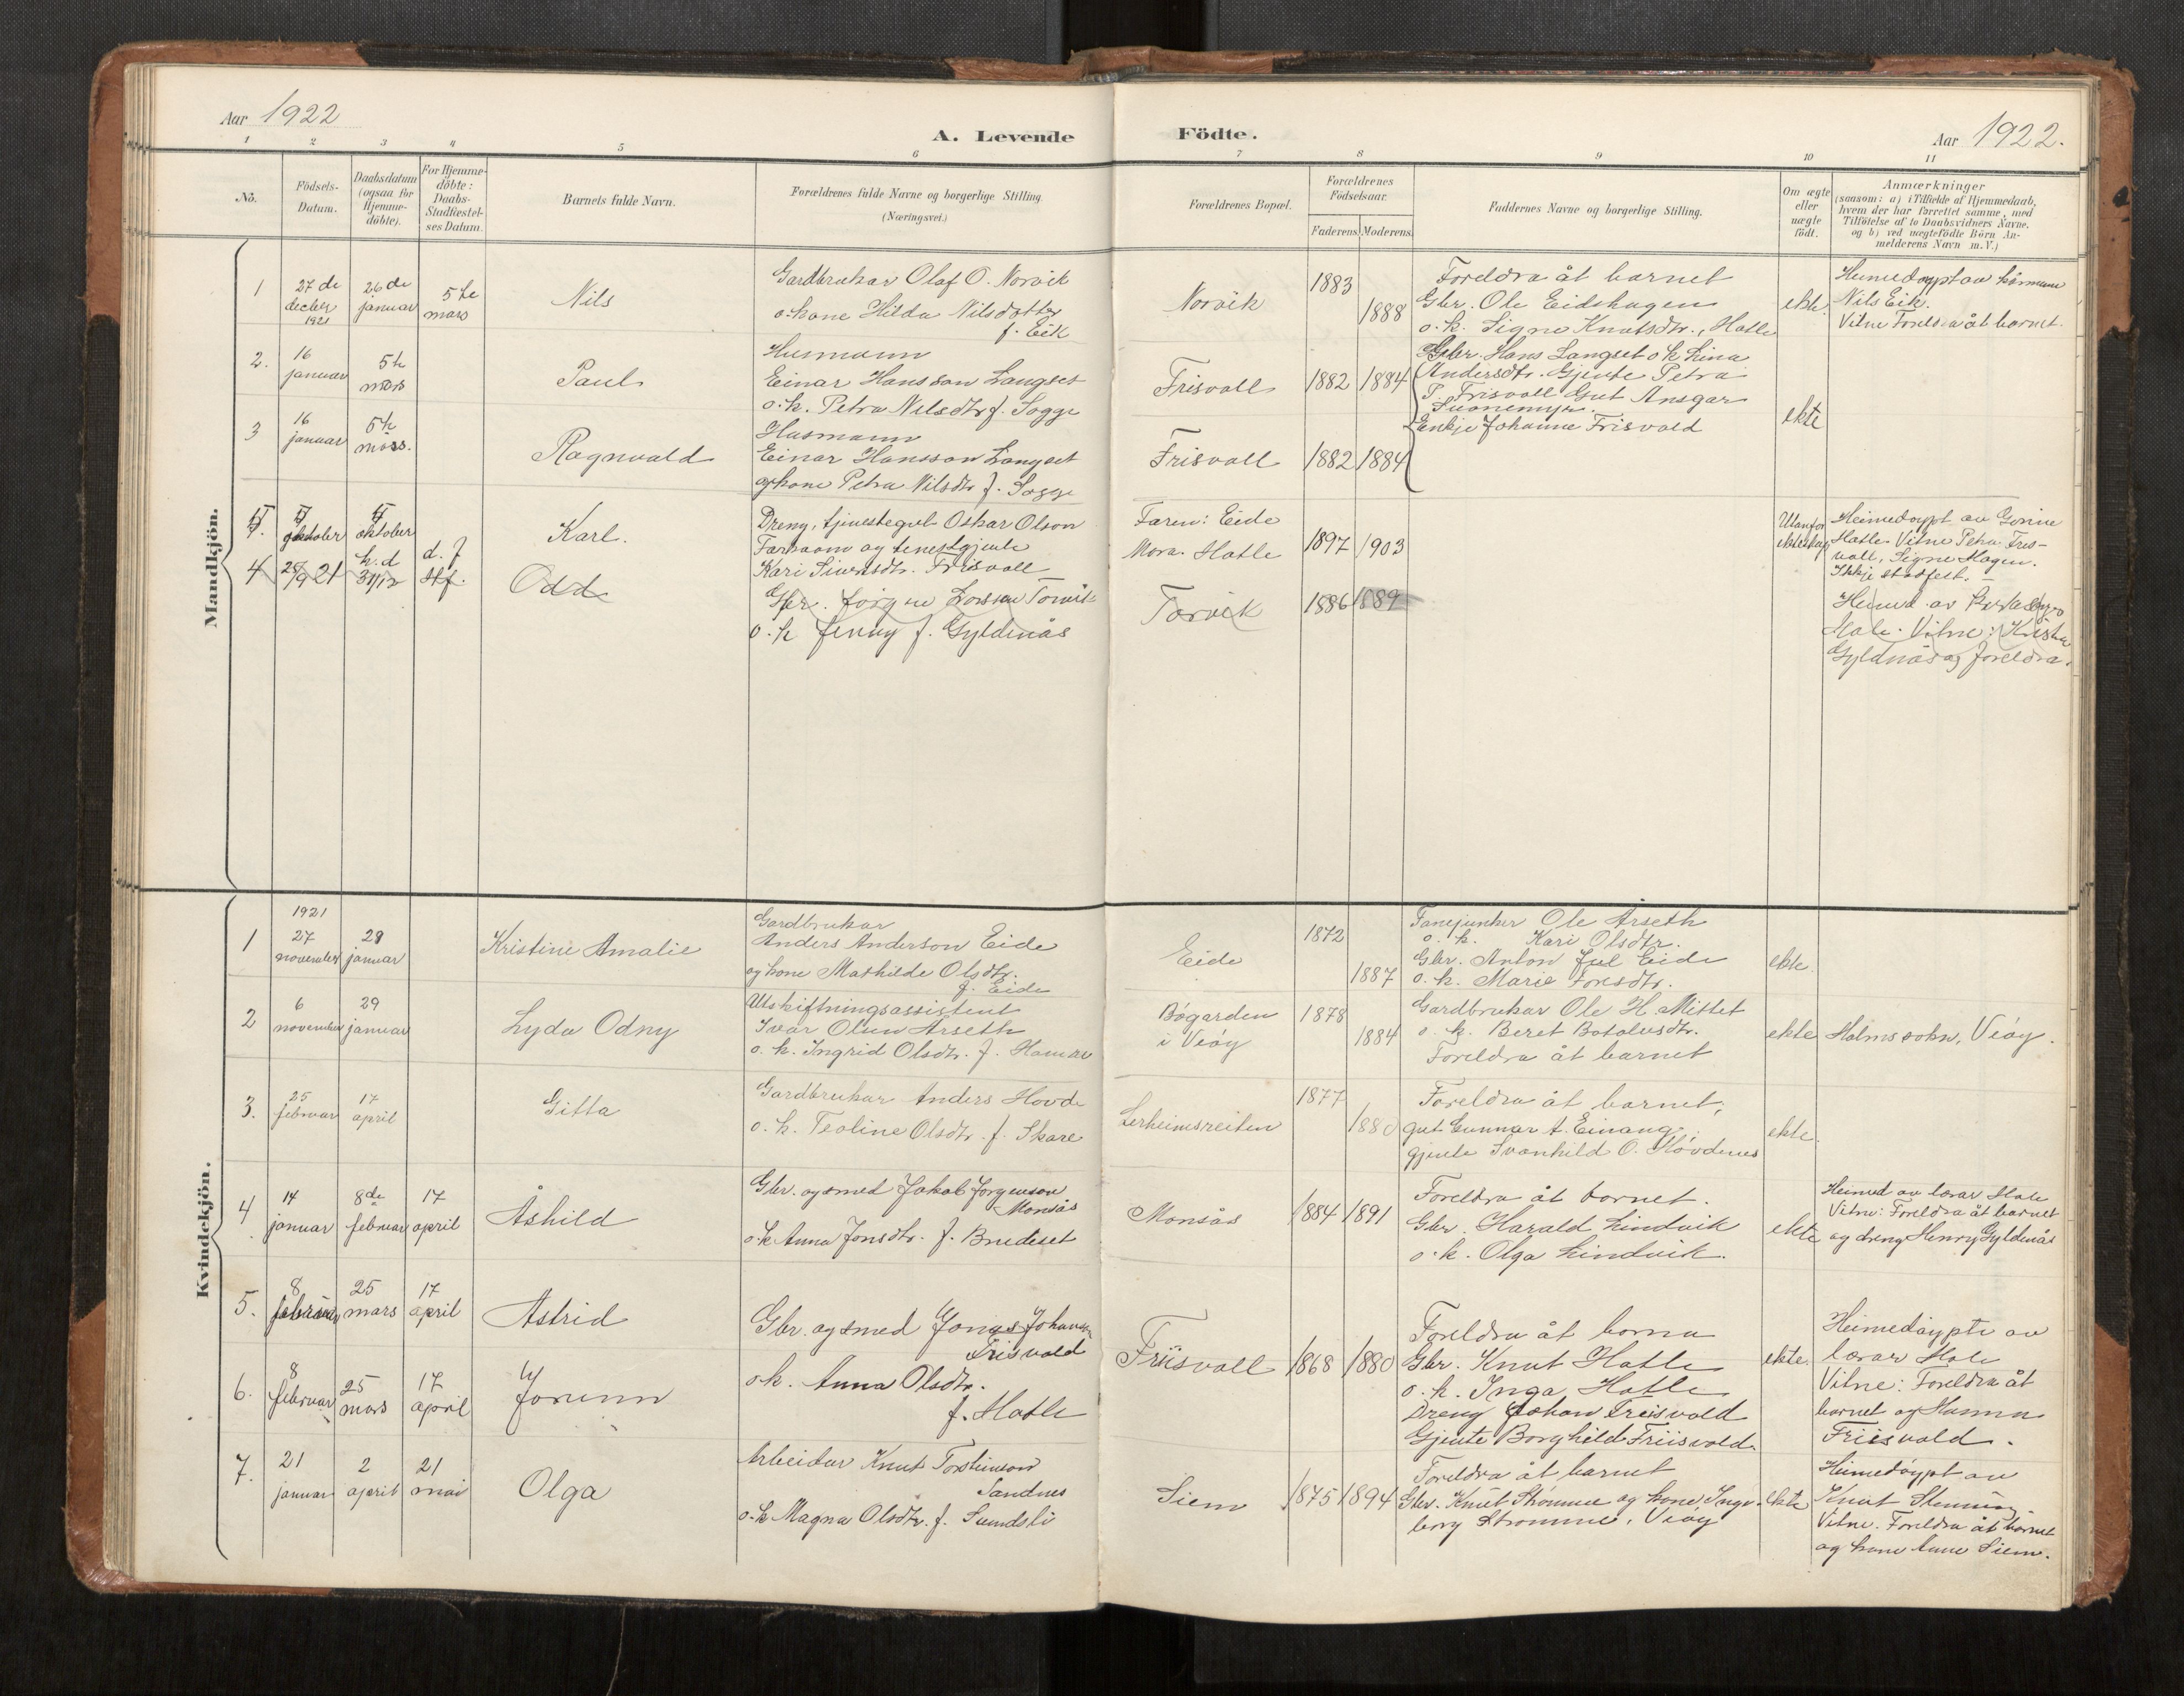 Aar 1922
A. Levende Födte.
Aar 1922.
1 2 3 4 5 6 7 8 9 10 11
No.
Födsels-
Datum.
Daabsdatum
(ogsaa for
Hjemme-
döbte).
For Hjemme-
döbte:
Daabs-
Stadfæstel-
ses Datum.
Barnets fulde Navn.
Forældrenes fulde Navne og borgerlige Stilling
(Næringsvei.)
Forældrenes Bopæl.
Forældrenes
Födselsaar.
Faderens. Moderens.
Faddernes Navne og borgerlige Stilling.
Om ægte
eller
uægte
födt.
Anmærkninger
(saasom: a) i Tilfælde af Hjemmedaab,
hvem der har forrettet samme, med
Tilföielse af to Daabsvidners Navne,
og b) ved uægtefödte Börn An-
melderens Navn m. V.)
Mandkjön.
1
27 de
decber
1921
26 de
januar
5 te
mars
Nils
Gardbrukar Olaf O. Norvik
o. kone Hilda Nilsdotter
f. Eik
Norvik
1883
1888
Foreldra åt barnet
Gbr. Ole Eidshagen
o. k. Signe Knutsdtr., Hatle
ekte.
Heimedøypt av
Nils Eik.
Vitne Foreldra åt barnet.
2.
16
januar
5te
mars
Paul
Husmann
Einar Hansson Langset
o. k. Petra Nilsdtr f. Sogge
Frisvoll
1882 1884
Gbr. Hans Langset o k Lina
Andersdtr. Gjente Petra
P. Frisvoll Gut Ansgar
Enkje Johanne Frisvold
ekte
3
16
januar
5te
mars.
Ragnvald
Husmann
Einar Hansson Langset
og kone Petra Nilsdtr f. Sogge
Frisvoll
1882 1884
oktober
oktober
Karl.
Dreng, tjenestegut Oskar Olson
og tenestgjente
Kari Sivertsdtr. Frisvoll
Faren: Eide
Mora. Hatle
1897 1903
Utanfor
ekteskap
Heimedøypt av Gurine
Hatle. Vitne Petra Fris-
voll, Signe Hagen.
Ikkje stadfest.
4
28/9 21
h. d
31/12
d. f
stf.
Odd
Gbr. Jørgen Larsson Torvik
o. k Jenny f. Gyldenås
Torvik
1886 1889
Heimd av
Hole. Vitne: Kristen
Gyldnås og foreldra.
Kvindekjön.
1
1921
27
november
29
januar
Kristine Amalie
Gardbrukar
Anders Anderson Eide
og kone Mathilde Olsdtr.
f. Eide
Eide
1872
1887
Fanejunker Ole Årseth
o. k. Kari Olsdtr.
Gbr. Anton Jul Eide
o. k. Marie Jonsdtr.
ekte.
2
6
november
29
januar
Lyda Odny
Utskiftningsassistent
Ivar Olsen Årseth
o. k. Ingrid Olsdtr. f. Hamre
Bøgarden
i Veøy
1878
1884
Gardbrukar Ole H. Mittet
o. k. Beret Botolvsdtr.
Foreldra åt barnet
ekte
Holms sokn, Veøy.
3.
25
februar
17
april
Gitta
Gardbrukar Anders Hovde
o. k. Teoline Olsdtr. f. Skare
Lerheimsreiten
1877
1880
Foreldra åt barnet,
gut Gunnar A. Einang.
gjente Svanhild O. Hovdenes
ekte.
4
14
januar
8de
februar
17
april
Åshild
Gbr. og smed Jakob Jørgenson
Monsås
o. k Anna Jonsdtr. f. Bredeset
Monsås
1884 1891
Foreldra åt barnet.
Gbr. Harald Lindvik
o. k. Olga Lindvik.
ekte
Heimed av lærar Hole
Vitne: Foreldra åt barnet
og dreng Henry Gyldenås
5.
8
februar
25
mars
17
april
Astrid
Gbr. og smed Jonas Johanson
Frisvold
Friisvoll
1868 1880
Foreldra åt borna
Gbr. Knut Hatle
o. k. Inga Hatle
Dreng Johan Freisvold
Gjente Borghild Friisvold.
ekte.
Heimedøypte av
lærar Hole
Vitne: Foreldra åt
barnet og Hanna
Friisvold.
6.
8
februar
25
mars
17
april
Jorunn
o. k. Anna Olsdtr.
f. Hatle
7.
21
januar
2
april
21
mai
Olga
Arbeidar Knut Torsteinson
Sandnes
o. k Magna Olsdtr. f. Sundsli
Siem
1875 1894
Foreldra åt barnet
Gbr. Knut Strømme og kone Inge-
borg Strømme, Veøy
ekte
Heimedøypt av
Knut
Vitne. Foreldra åt barnet
og kone Anne Siem.